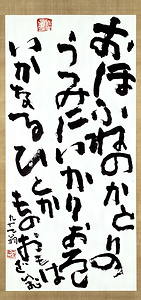 おほふねのかとりの
うみにいかりおろし
いかなるひとか
ものおもは
ざらむ